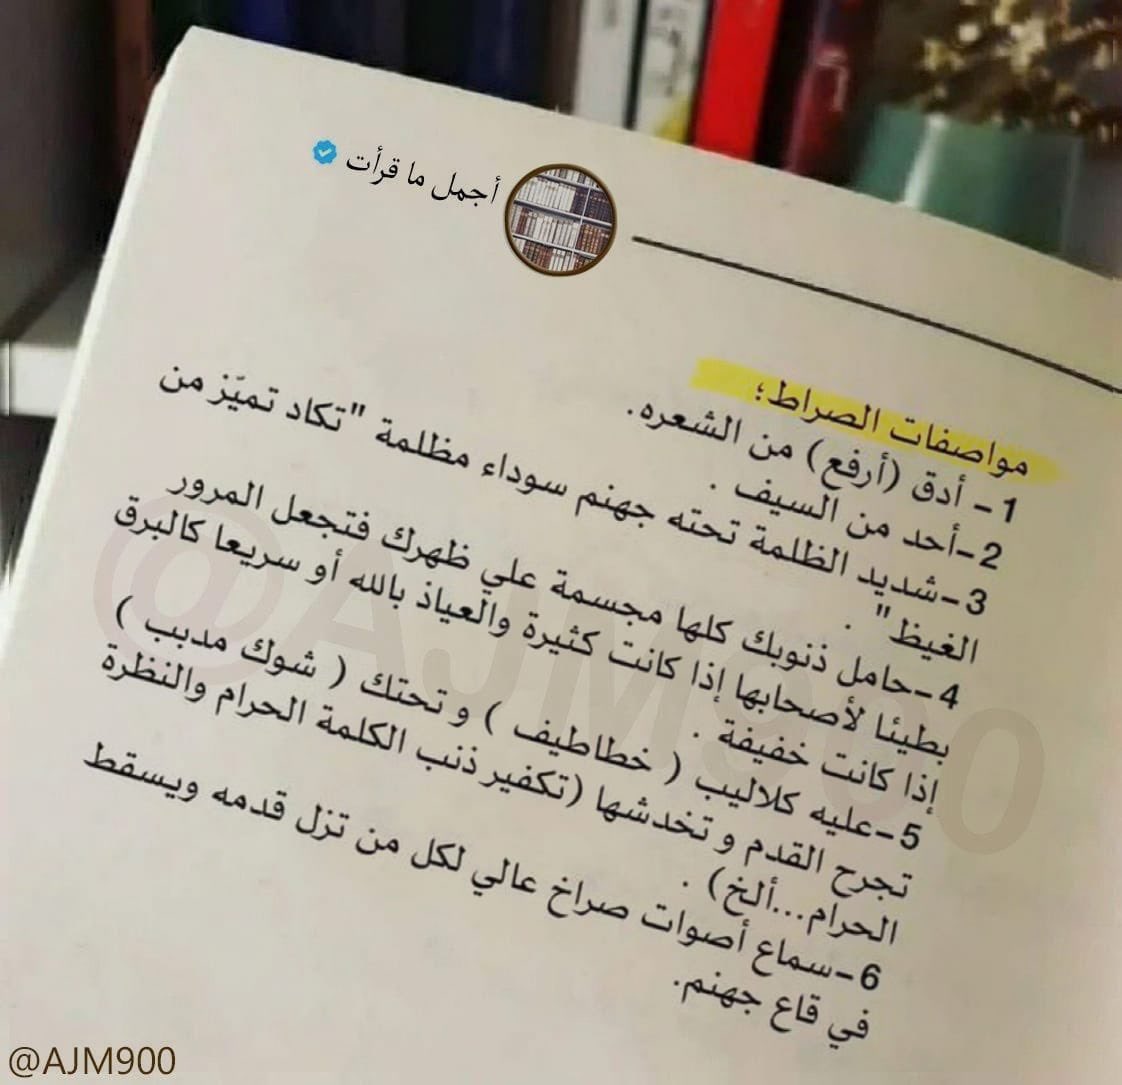 أجمل ما قرأت
مواصفات الصراط؛
1- أدق (أرفع) من الشعره.
2-أحد من السيف .
3-شديد الظلمة تحته جهنم سوداء مظلمة "تكاد تميّز من
الغيظ" .
4-حامل ذنوبك كلها مجسمة علي ظهرك فتجعل المرور
بطيئا لأصحابها إذا كانت كثيرة والعياذ بالله أو سريعا كالبرق
إذا كانت خفيفة .
5-عليه كلاليب ( خطاطيف ) و تحتك ( شوك مدبب )
تجرح القدم و تخدشها (تكفير ذنب الكلمة الحرام والنظرة
الحرام...ألخ) .
6-سماع أصوات صراخ عالي لكل من تزل قدمه ويسقط
في قاع جهنم.
@AJM900
@AJM900